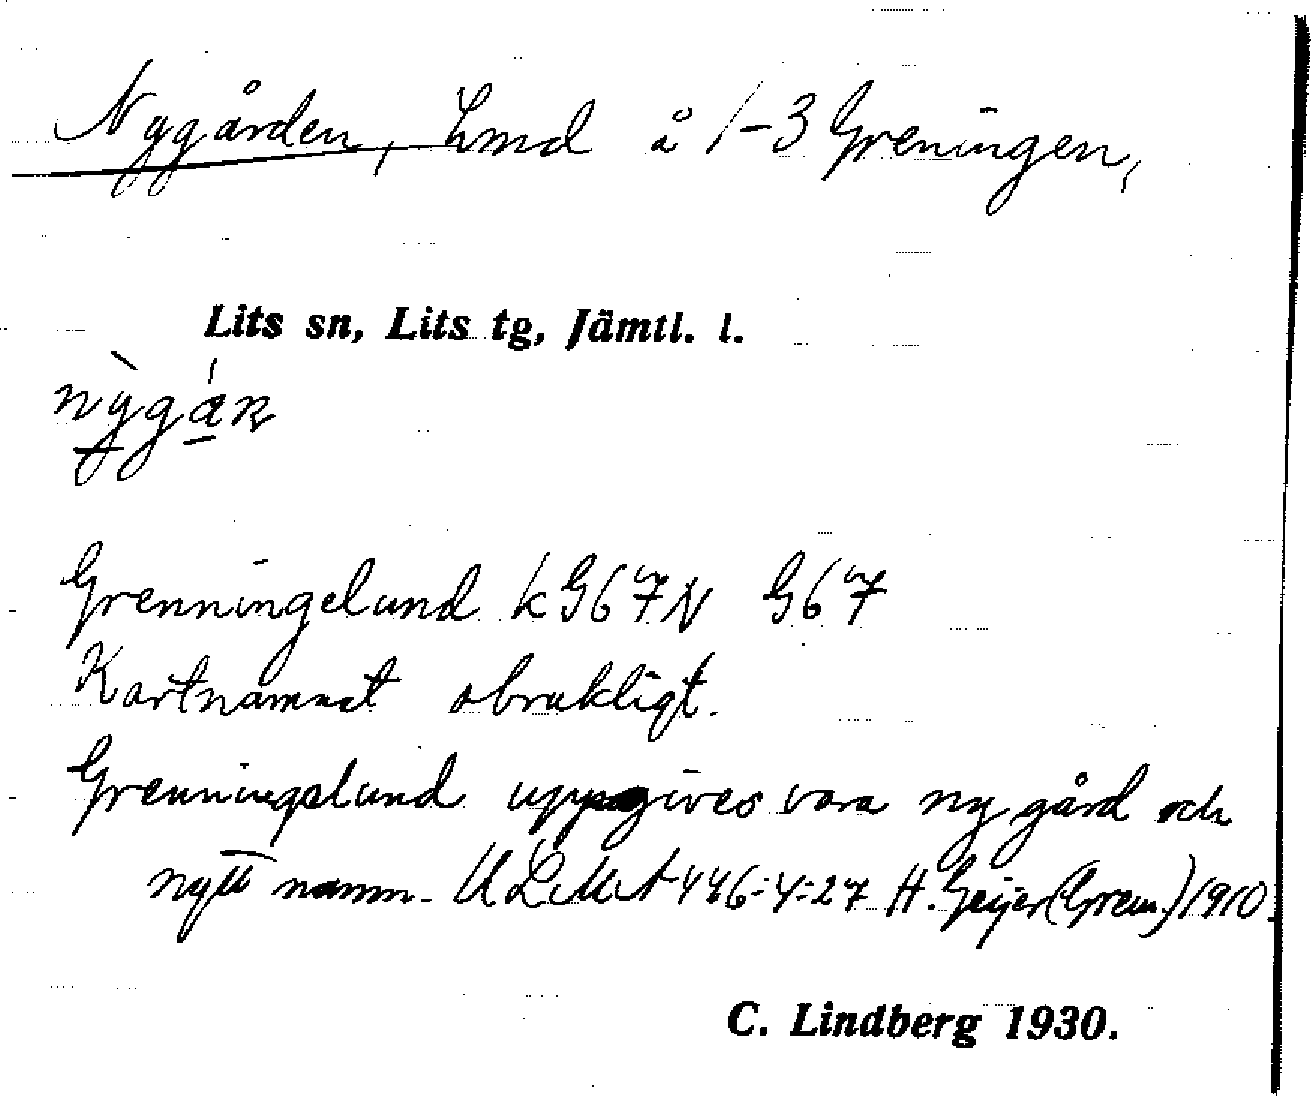 Nygården, Lmd å 1-3 Greningen,
Lits sn, Lits tg, Jämtl. l.
nỳgáṉ
Grenningelund k G67N G67
Kartnamnet obrukligt.
Grenningslund uppgives vara ny gård och
nytt namn. ULMA 446:4:27 H. Geijer (Gren.) 1910.
C. Lindberg 1930.